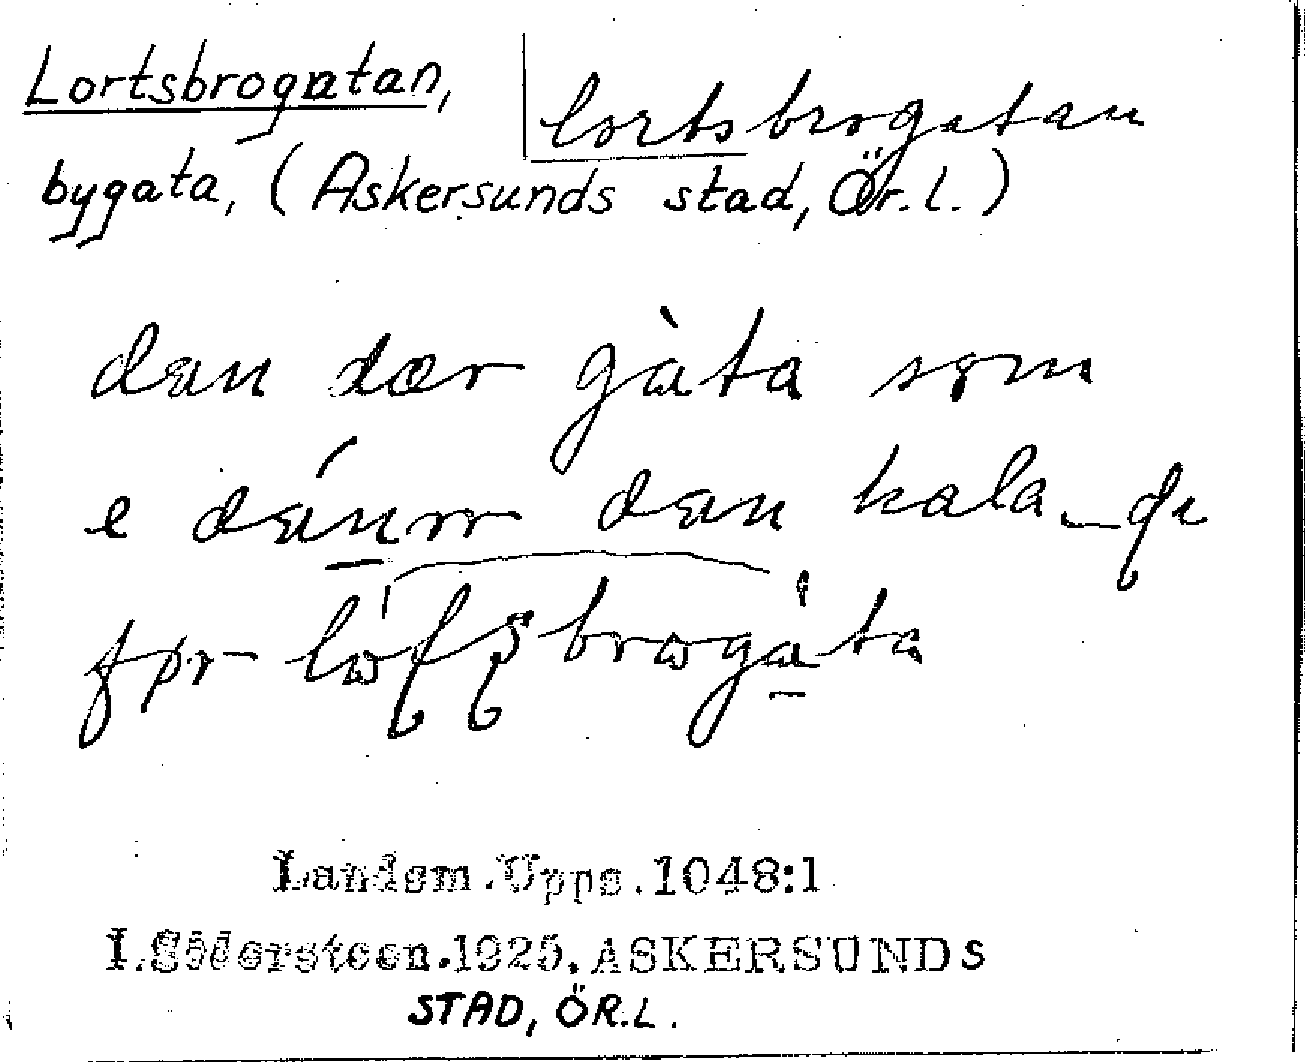 Lortsbrogatan,
lortsbrogatan
bygata, (Askersunds stad, Ör.l.)
dæn dær gàta som
e dænrr dæn kala di
før brogàta
Landsm.Upps.1048:1
I.Södersteen.1925.ASKERSUNDS
STAD, ÖR.L.